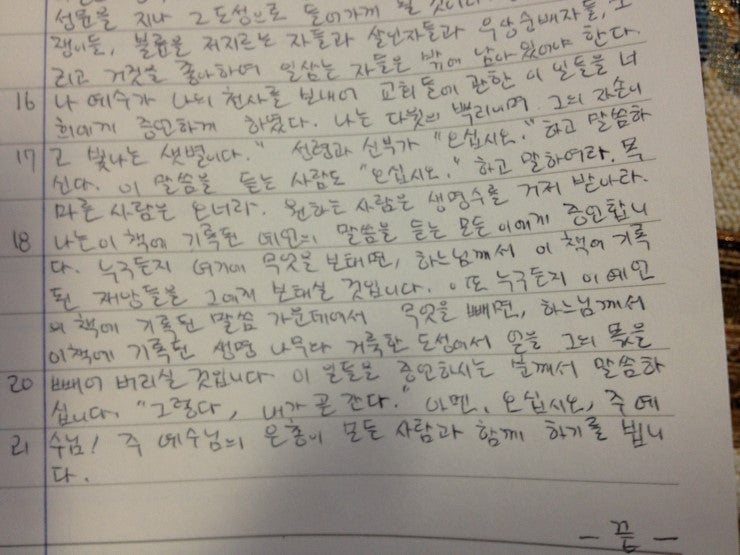 성문을 지나 그 도성으로 들어가게 될 것이다.
쟁이들, 불륜을 저지르는 자들과 살인자들과 우상숭배자들, 그
리고 거짓을 좋아하여 일삼는 자들은 밖에 남아 있어야 한다.
16 나 예수가 나의 천사를 보내어 교회들에 관한 이 일들을 너
희에게 증언하게 하였다. 나는 다윗의 뿌리이며 그의 자손이
17 고 빛나는 샛별이다." 성령과 신부가 "오십시오." 하고 말씀하
신다. 이 말씀을 듣는 사람도 "오십시오." 하고 말하여라. 목
마른 사람은 오너라. 원하는 사람은 생명수를 거저 받아라.
18 나는 이 책에 기록된 예언의 말씀을 듣는 모든 이에게 증언합니
다. 누구든지 여기에 무엇을 보태면, 하느님께서 이 책에 기록
된 재앙들을 그에게 보태실 것입니다. 또 누구든지 이 예언
의 책에 기록된 말씀 가운데에서 무엇을 빼면, 하느님께서
이 책에 기록된 생명 나무와 거룩한 도성에서 얻을 그의 몫을
20 빼어 버리실 것입니다 이 일들을 증언하시는 분께서 말씀하
십니다. "그렇다, 내가 곧 간다." 아멘. 오십시오, 주 예
21 수님! 주 예수님의 은총이 모든 사람과 함께 하기를 빕니
다.
- 끝 -